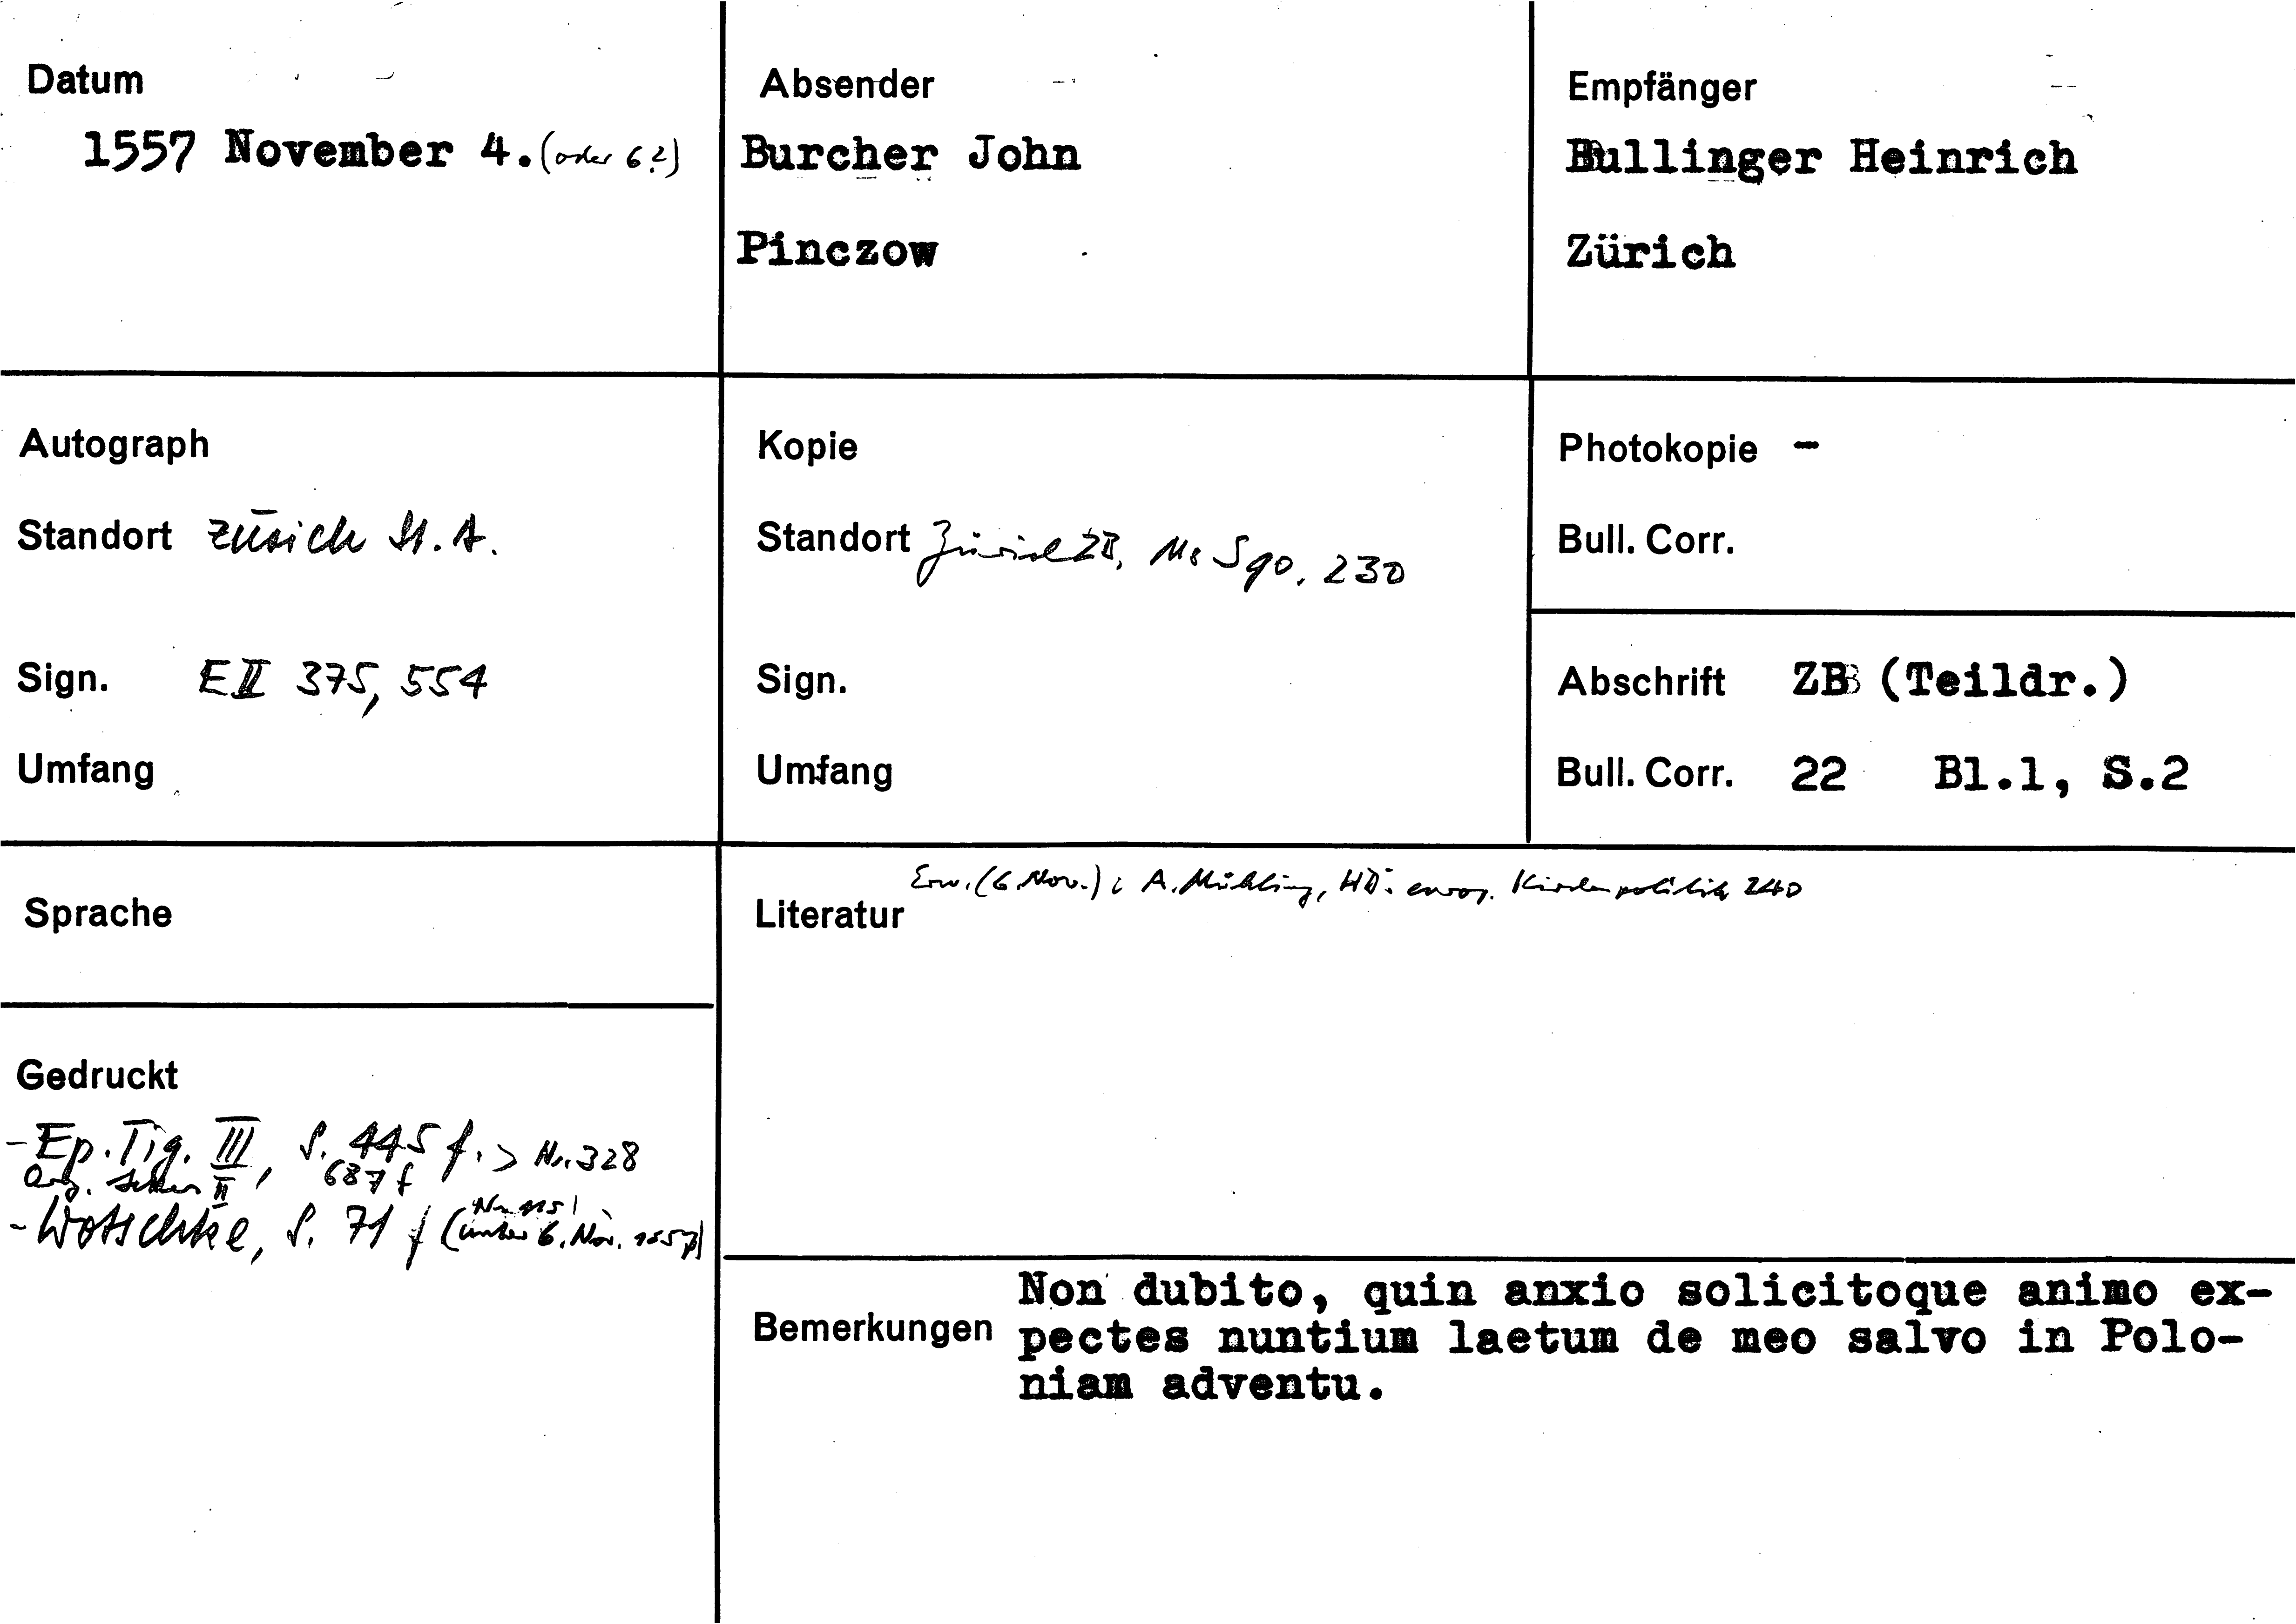 Datum
1557 November 4. (oder 6?)
Absender
Burcher John
Pinczow
Empfänger
Bullinger Heinrich
Zürich
Autograph
Standort Zürich St. A.
Sign. E II 375, 554
Umfang
Kopie
Standort Zürich ZB, Ms S 90, 230
Sign.
Umfang
Photokopie -
Bull. Corr.
Abschrift ZB (Teildr.)
Bull. Corr. 22 Bl.1, S.2
Sprache
Gedruckt
- Ep. Tig. III, S. 445 f. > Nr. 328
II 687 f
- Wotschke, S. 71 f (Nr. 115
unter 6. Nov. 1557)
Literatur Erw. (6. Nov.): A. Mühling, HBs europ. Kirchenpolitik 240
Bemerkungen
Non dubito, quin anxio solicitoque animo ex-
pectes nuntium laetum de meo salvo in Polo-
niam adventu.